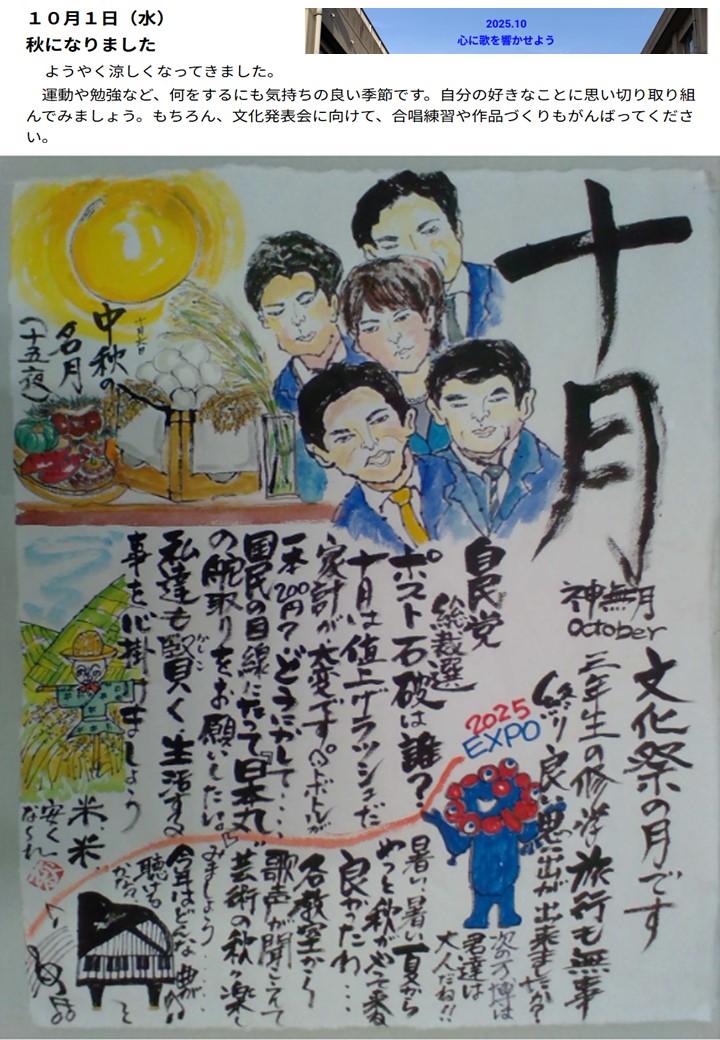 10月1日（水）
秋になりました
2025.10
心に歌を響かせよう
ようやく涼しくなってきました。
運動や勉強など、何をするにも気持ちの良い季節です。自分の好きなことに思い切り取り組
んでみましょう。もちろん、文化発表会に向けて、合唱練習や作品づくりもがんばってくださ
い。
十月
神無月
October
文化祭の月です
三年生の修学旅行も無事
終り良い思い出が出来ましたか？
2025
EXPO
次の万博は
君達は
大人だね!!
自民党
総裁選
ポスト石破は誰？
十月は値上げラッシュだ
家計が大変ですペットボトルが
一本200円？どうにかして...
国民の目線にたって『日本丸』
の舵取りをお願いしたい
私達も賢く生活する
かしこ
事を心掛けましょう
中秋の
名月
(十五夜)
十月六日
米、米
安くな〜れ
暑い、暑い夏から
やっと秋がやって来て
良かったわ...
各教室から
歌声が聞こえて
芸術の秋を楽し
みましょう...
今年はどんな曲が
聴けるかな？